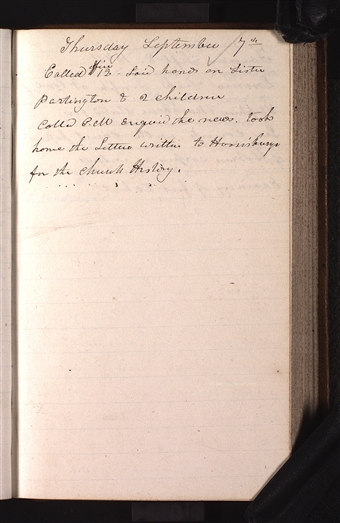 Thursday September 17th
Called 13. Laid hands on Sister
Partington & 2 children
Called P.M. Enquired the news. took
home the Letters written to Harrisburge
for the Church History.